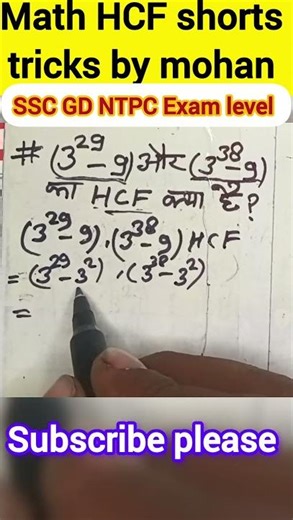 Math HCF shorts
tricks by mohan
SSC GD NTPC Exam level
# (3²⁹-9) और (3³⁸-9)
का HCF क्या है?
(3²⁹-9), (3³⁸-9) HCF
= (3²⁹-3²), (3³⁸-3²)
=
Subscribe please